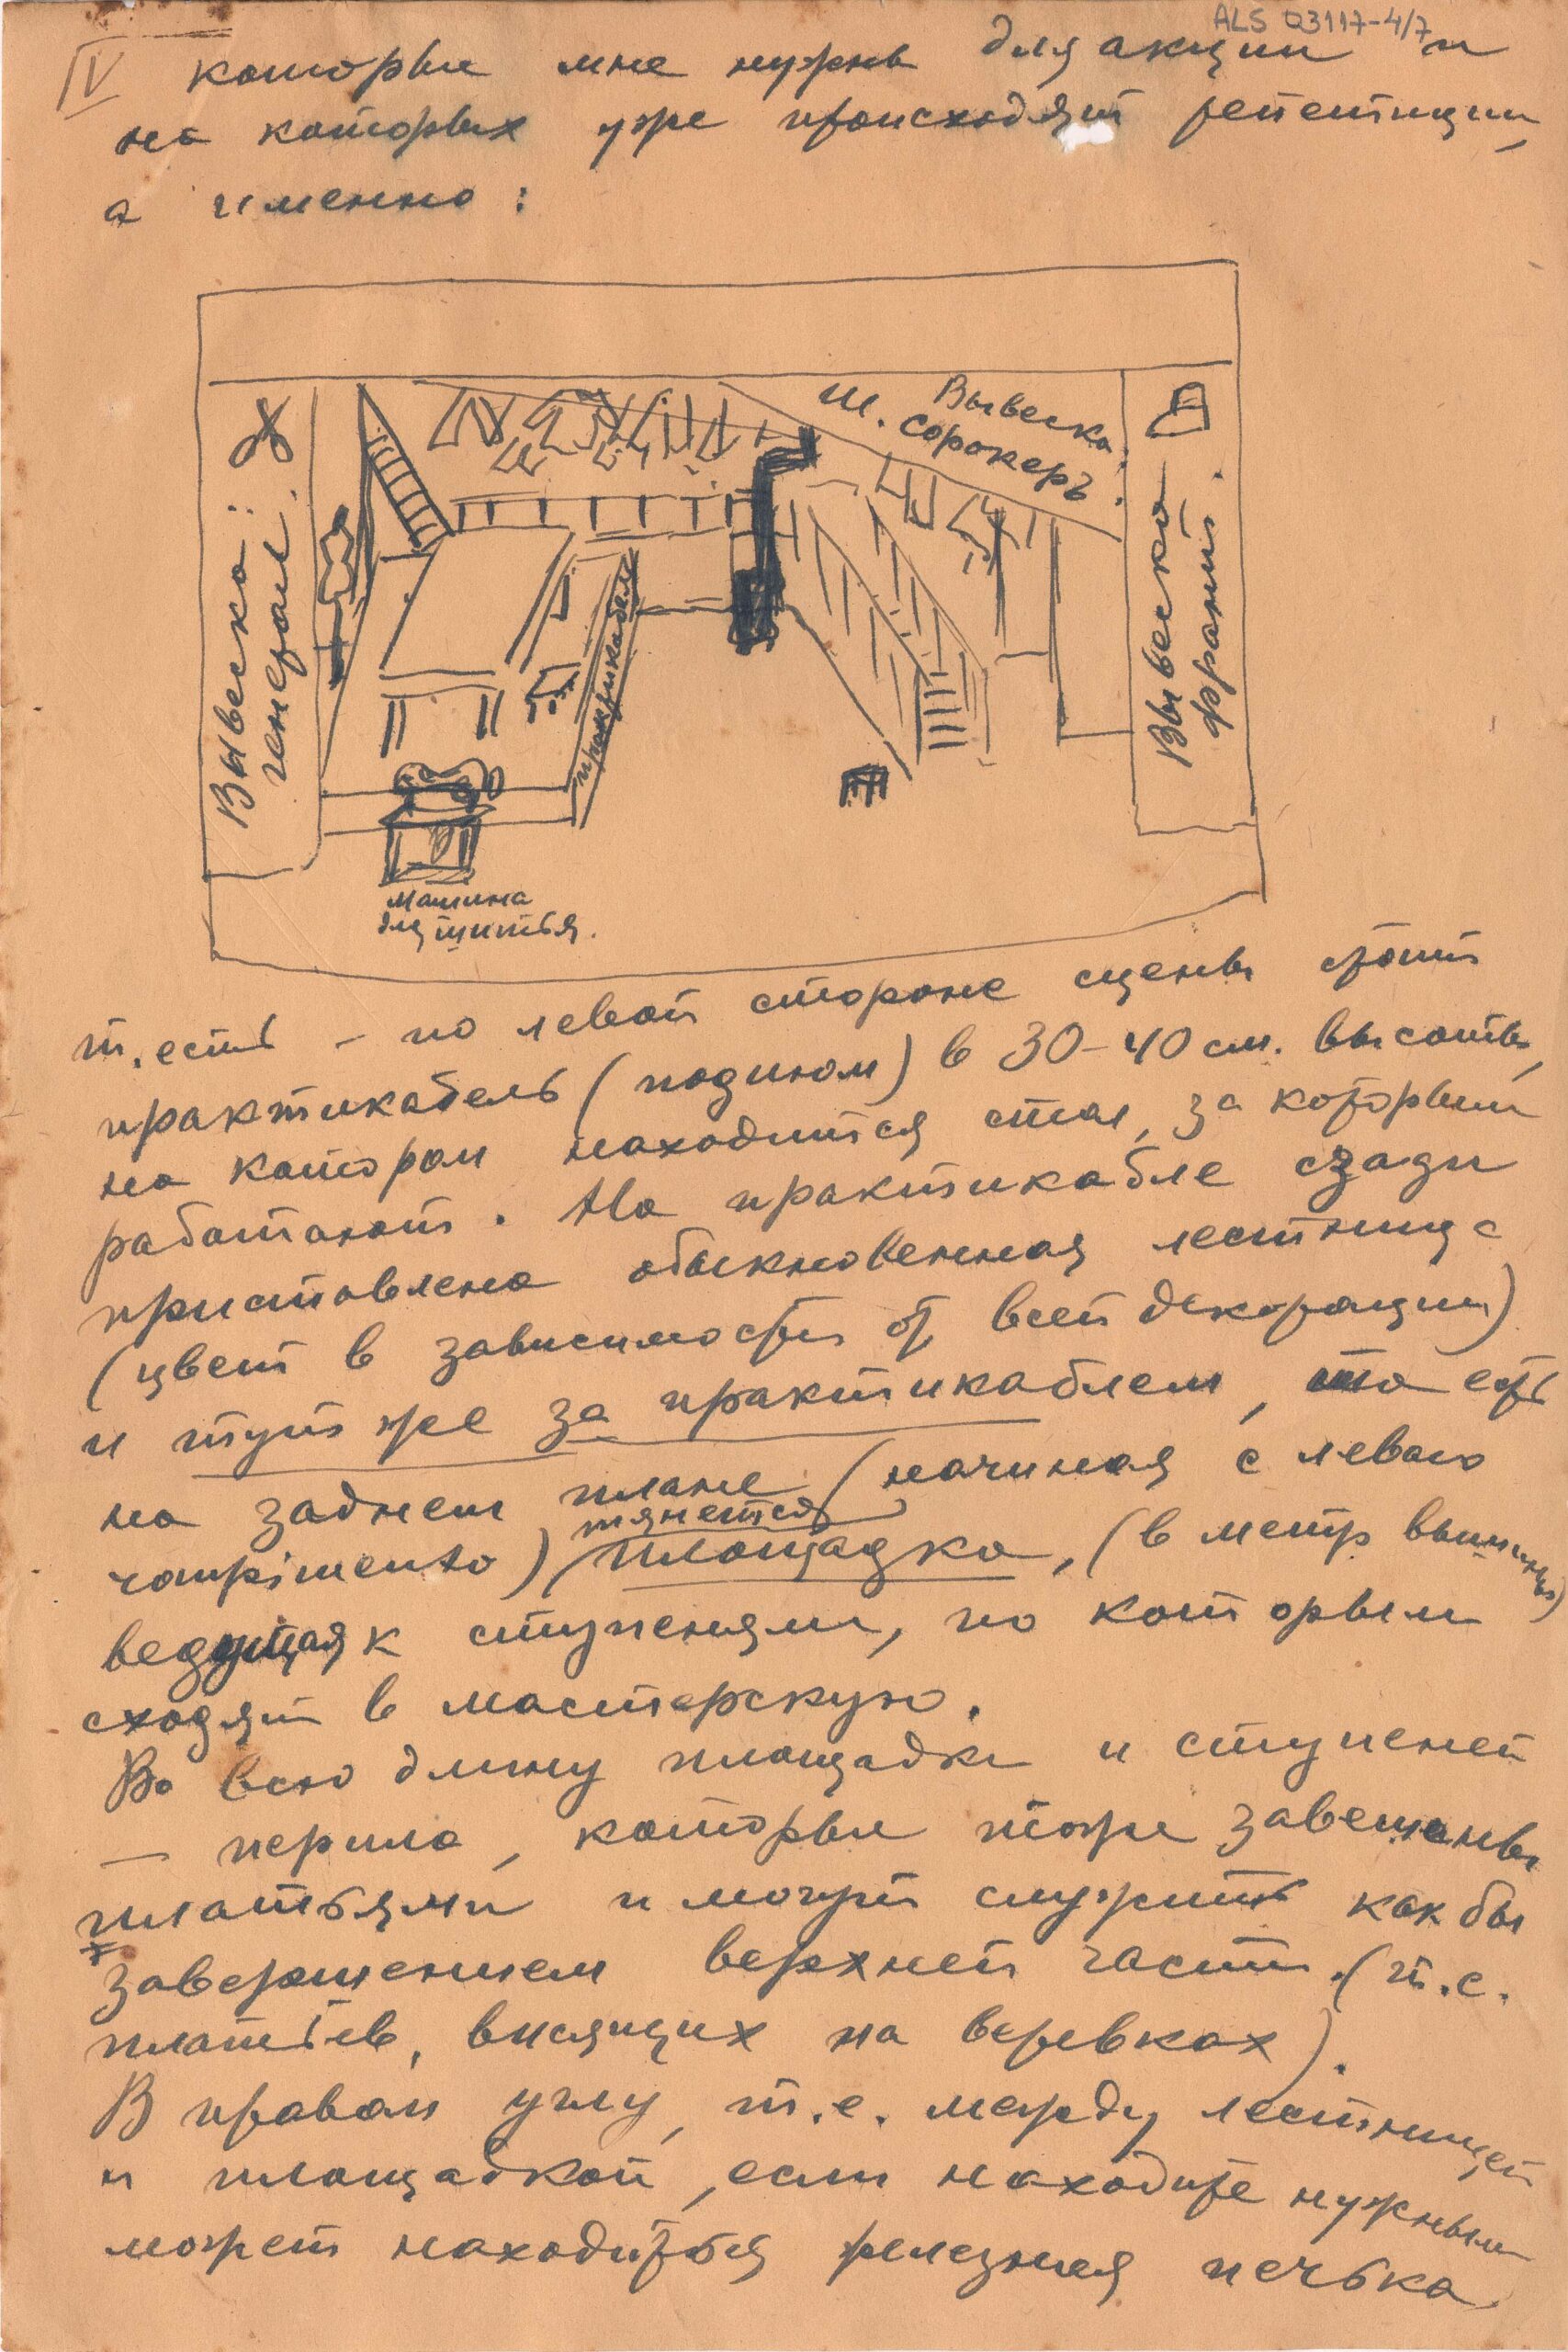 ALS 03117-4/7
IV которые мне нужны для акции и
на которых уже происходят репетиции,
а именно:
Вывеска
Ш. Сорокеръ.
Вывеска:
генерал.
Вывеска
франт.
практикабель
машина
для шитья.
т. есть – по левой стороне сцены стоит
практикабель (подиюм) в 30–40 см. высоты,
на котором находится стол, за которым
работают. На практикабле сзади
приставлена обыкновенная лестница
(цвет в зависимости от всей декорации)
и тут же за практикаблем, то есть
на заднем плане (начиная с левого
тянется
) площадка, (в метр вышины)
ведущая к ступеням, по которым
сходят в мастерскую.
Во всю длину площадки и ступеней
– перила, которые тоже завешаны
платьями и могут служить как бы
завершением верхней части (т.е.
платьев, висящих на веревках).
В правом углу, т.е. между лестницей
и площадкой, если находите нужным
может находиться железная печька